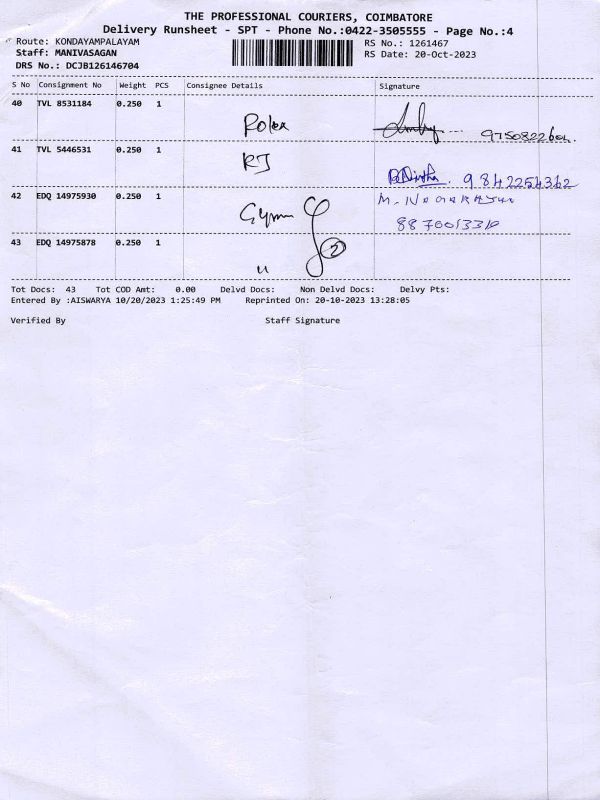 THE PROFESSIONAL COURIERS, COIMBATORE
Delivery Runsheet - SPT - Phone No.:0422-3505555 - Page No.:4
Route: KONDAYAMPALAYAM
RS No.: 1261467
Staff: MANIVASAGAN
RS Date: 20-Oct-2023
DRS No.: DCJB126146704
S No Consignment No Weight PCS Consignee Details Signature
40 TVL 8531184 0.250 1
Rolex
41 TVL 5446531 0.250 1
RJ
9842254362
42 EDQ 14975930 0.250 1
43 EDQ 14975878 0.250 1
2
u
Tot Docs: 43 Tot COD Amt: 0.00 Delvd Docs: Non Delvd Docs: Delvy Pts:
Entered By :AISWARYA 10/20/2023 1:25:49 PM Reprinted On: 20-10-2023 13:28:05
Verified By Staff Signature